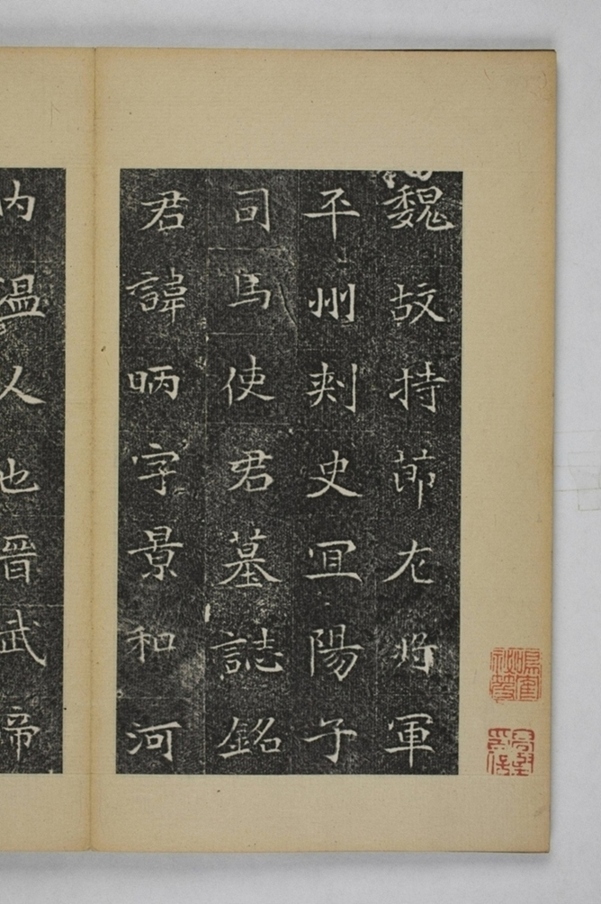 魏故持莭尤将軍
平州刾史冝陽子
司馬使君墓誌銘
君諱昞字景和河
内温人也晉武帝